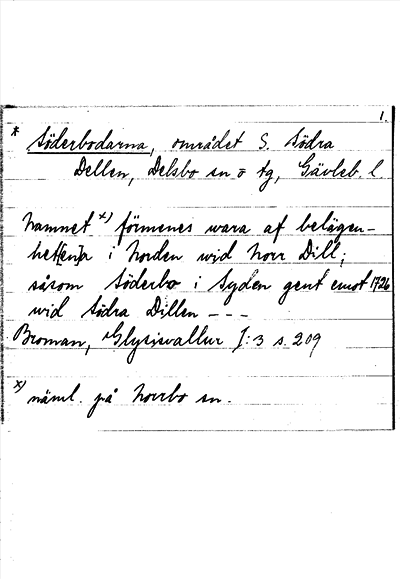 1.
* Söderbodarna, området S. Södra
Dellen, Delsbo sn o tg, Gävleb. l.
Namnet x) förmenes wara af belägen-
het[en]a i Norden wid Norr Dill;
såsom Söderbo i Syden gent emot 1726
wid Södra Dillen - - -
Broman, Glysisvallur I:3 s. 209
x) näml. på Norrbo sn.